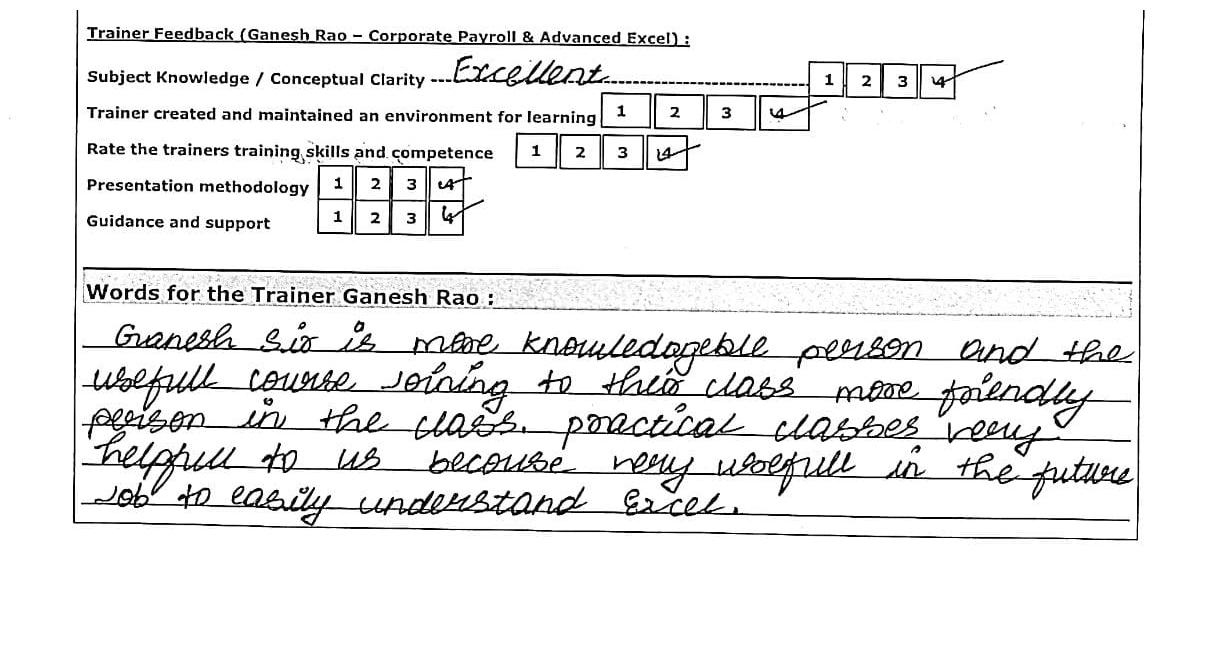 Trainer Feedback (Ganesh Rao – Corporate Payroll & Advanced Excel) :
Subject Knowledge / Conceptual Clarity --- Excellent ---------------------------- 1 2 3 4
Trainer created and maintained an environment for learning 1 2 3 4
Rate the trainers training skills and competence 1 2 3 4
Presentation methodology 1 2 3 4
Guidance and support 1 2 3 4
Words for the Trainer Ganesh Rao :
Ganesh sir is more knowledageble person and the
usefull course joining to their class more friendly
person in the class. practical classes very
helpfull to us becouse very usefull in the future
Job to easily understand Excel.